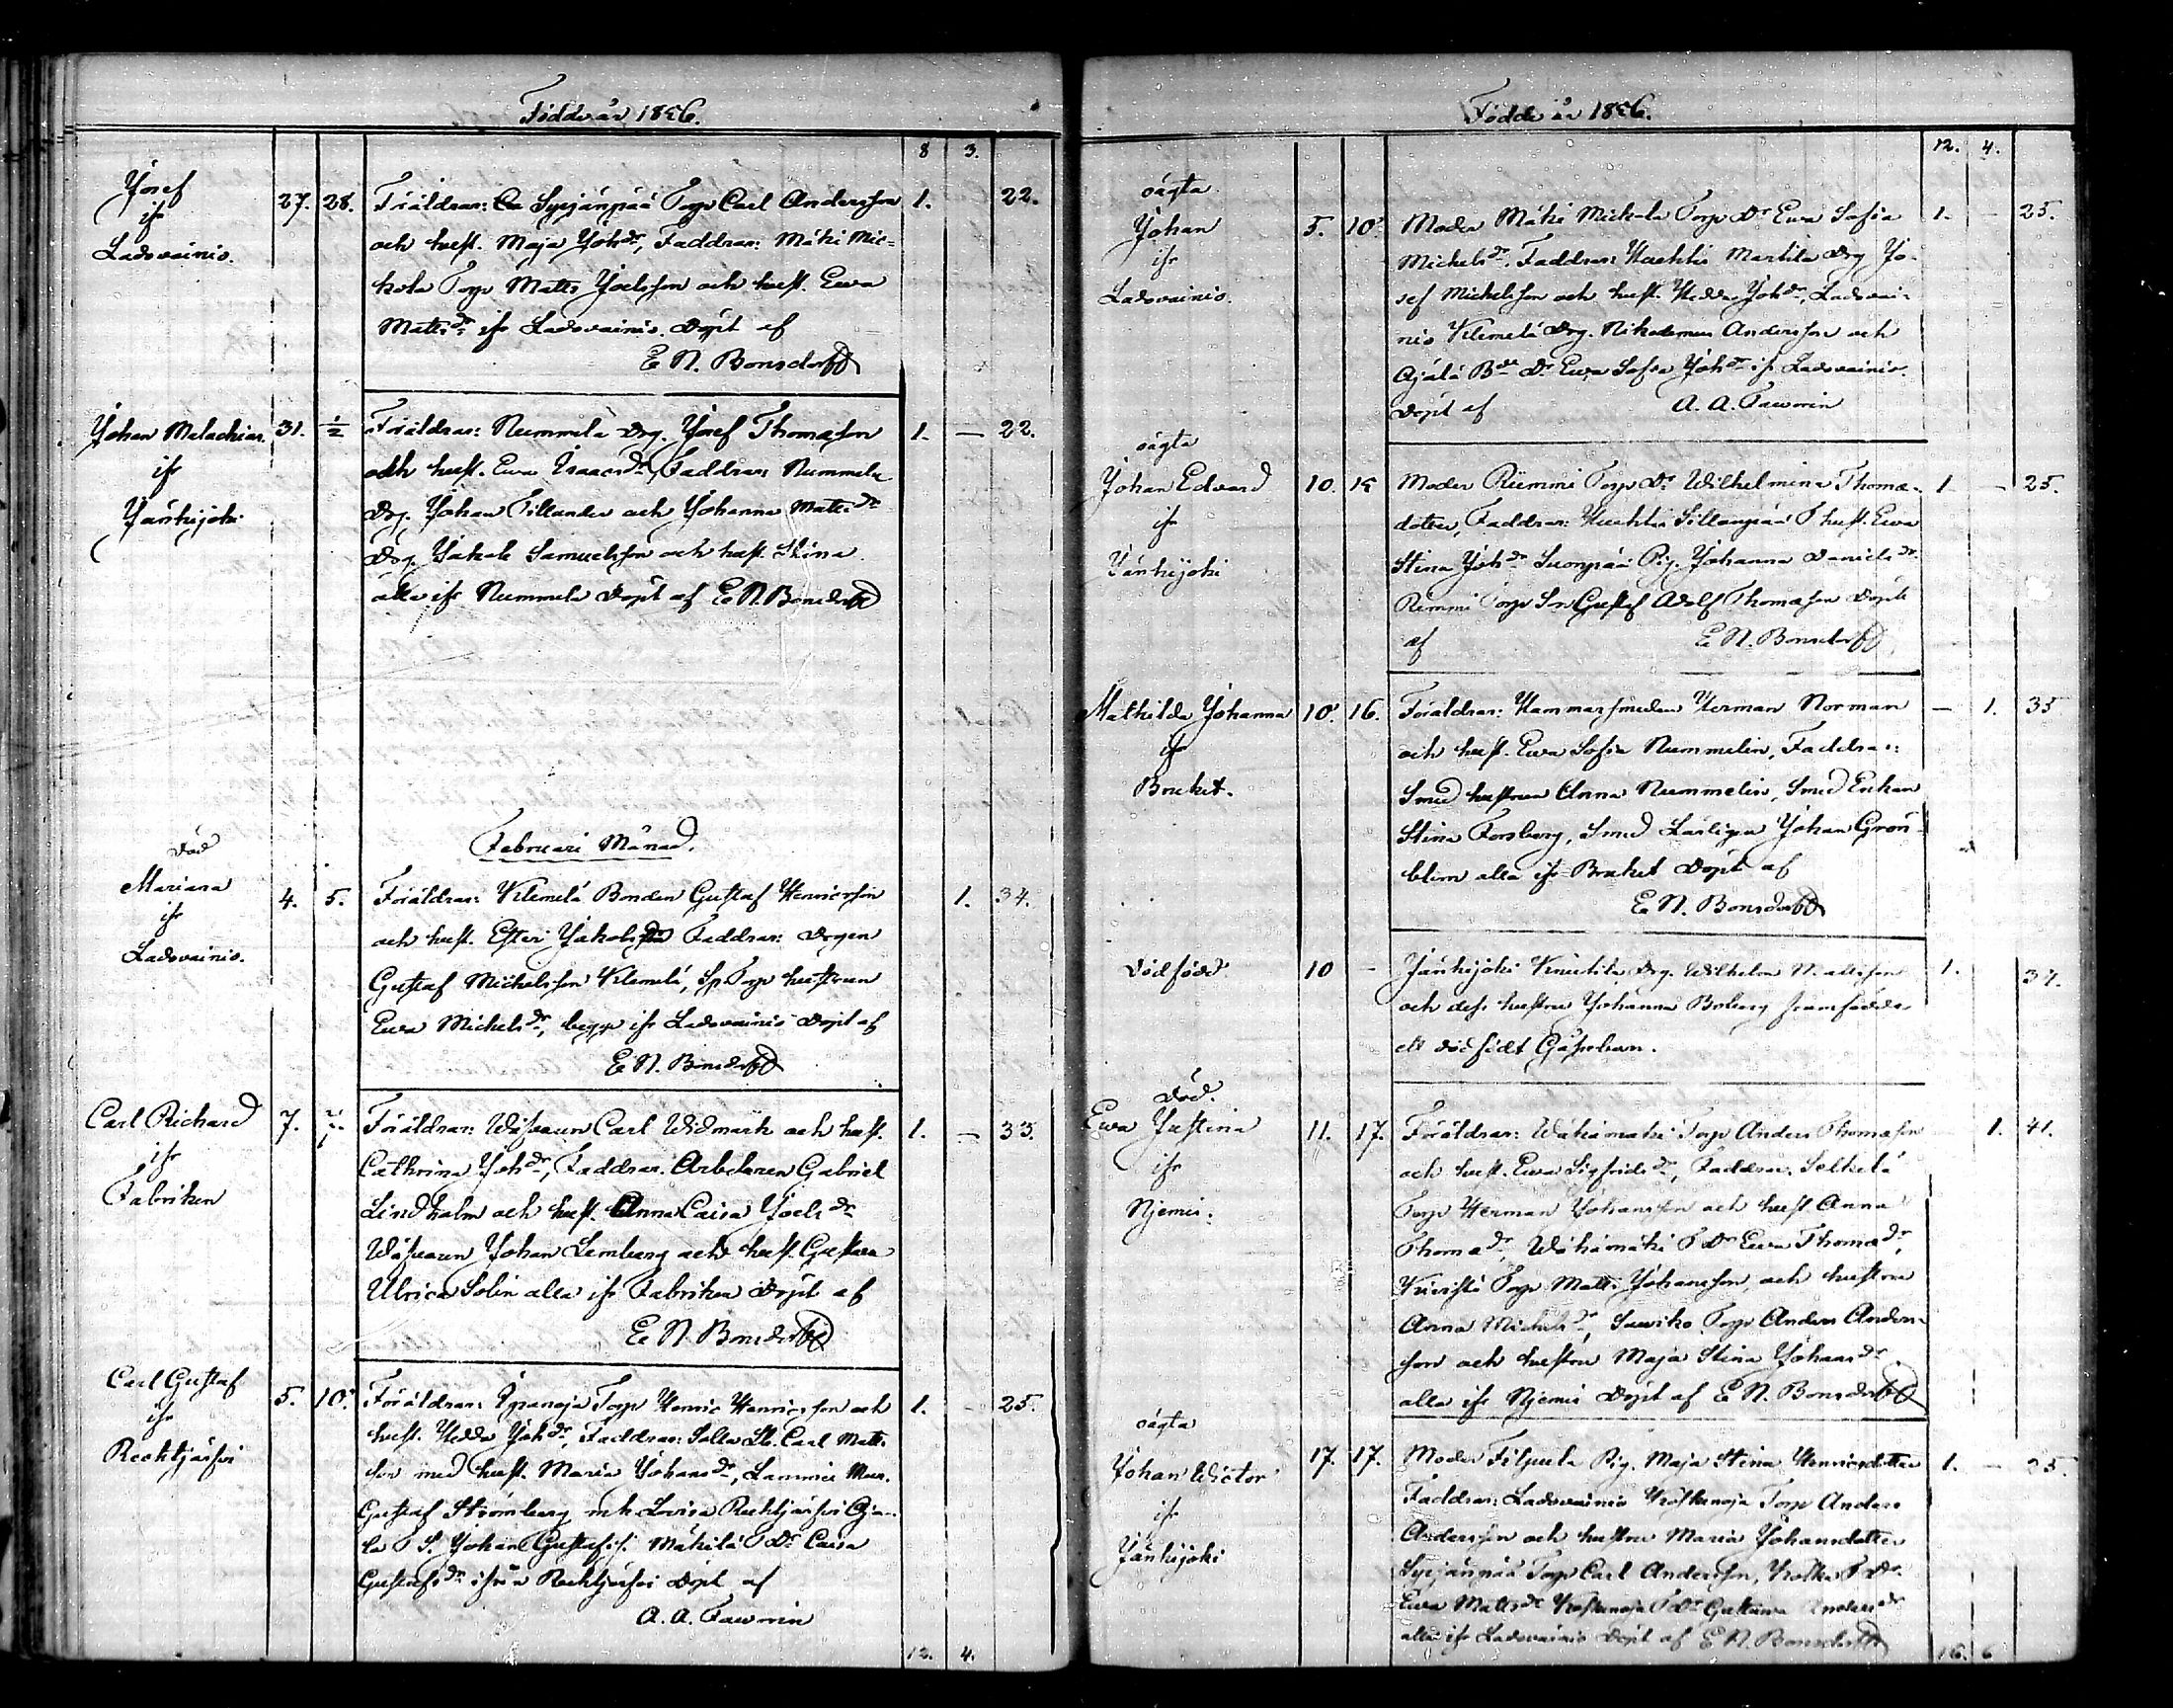 Födde år 1856.
8 3.
Josef
ifr
Ladovainio.
27. 28. Föräldrar: Syrjänpää Torp Carl Andersson 1. 22.
och hust. Maja Johdr, Faddrar: Mäki Mic-
kola Torp Matts Joelsson och hust. Ewa
Mattsdr ifr Ladovainio. Döpt af
E N. Bonsdorff
Johan Malachias
ifr
Jänhijoki
31. 1/2 Föräldrar: Nummela Drg. Josef Thomasson 1. — 22.
och hust. Ewa Isaacsdr, Faddrar: Nummela
Drg. Johan Tillander och Johanna Mattsdr
Drg. Jakob Samuelsson och hust. Stina
alla ifr Nummela Döpt af E N. Bonsdorff
Februari Månad.
död
Mariana
ifr
Ladovainio.
4. 5. Föräldrar: Klemelä Bonden Gustaf Henricsson 1. 34.
och hust. Ester Jakobsdr Faddrar: Drgen
Gustaf Michelsson Klemelä, Sp Torp hustrun
Ewa Michelsdr, begge ifr Ladovainio Döpt af
E N. Bonsdorff
Carl Richard
ifr
Fabriken
7. Föräldrar: Wäfvaren Carl Widmark och hust. 1. — 33.
Cathrina Johdr, Faddrar. Arbetaren Gabriel
Lindholm och hust. Anna Caisa Joelsdr
Wäfvaren Johan Lemberg och hust. Gustava
Ulrica Solin alla ifr Fabriken Döpt af
E N. Bonsdorff
Carl Gustaf
ifr
Rechtjärfvi
5. 10. Föräldrar: Torp Henric Henricsson och 1. - 25.
hust. Hedda Johdr, Faddrar: Salla Carl Matts
son med hust. Maria Johansdr, Lammi
Gustaf Strömberg m h Lovisa Rechtjärfvi
la T S. Johan Gustafss. Mäkilä T Dr Caisa
Gustafsdr ifrån Rechtjärfvi Döpt af
A. A. Faworin
12. 4.
Födde år 1856.
12. 4.
oägta
Johan
ifr
Ladovainio.
5. 10. Moder Mäki Mickola Torp Dr Ewa Sofia 1. - 25.
Michelsdr. Faddrar: Huchtis Marttila Drg Jo-
sef Michelsson och hust. Hedda Johdr, Ladovai-
nio Klemelä Drg. Nikodemus Andersson och
Ajälä Bde Dr Ewa Sofia Johdr ifr Ladovainio.
Döpt af A. A. Faworin
oägta
Johan Edvard
ifr
Jänhijoki
10. 15 Moder Riemmi Torp Dr Wilhelmina Thoma- 1 - 25.
dotter, Faddrar: Huchtis Sillanpää T hust. Ewa
Stina Johdr Suonpää Pig. Johanna Danielsdr
Remmi Torp Son Gustaf Adolf Thomasson Döpt
af E N. Bonsdorff
Mathilda Johanna
ifr
Bruket.
10. 16. Föräldrar: Hammarsmeden Herman Norman — 1. 35
och hust. Ewa Sofia Nummelin, Faddrar:
Smed hustrun Anna Nummelin, Smed Enkan
Stina Forsberg, Smed Lärlingen Johan Grön-
blom alla ifr Bruket Döpt af
E N. Bonsdorff
dödfödd 10 - Jänhijoki Knuutila Drg. Wilhelm Mattsson 1. 37.
och dess hustru Johanna Boberg framfödde
ett dödfödt Gåssebarn.
Död.
Ewa Justina
ifr
Njemis.
11. 17. Föräldrar: Wähämäki Torp Anders Thomasson 1. 41.
och hust. Ewa Sigfridsdr, Faddrar. Selkelä
Torp Herman Johansson och hust Anna
Thomadr, Wähämäki T Dr Ewa Thomadr,
Torp Matts Johansson, och hustru
Anna Michelsdr, Torp Anders Anders-
son och hustru Maja Stina Johansdr
alla ifr Njemis Döpt af E N. Bonsdorff
oägta
Johan Wictor
ifr
Jänhijoki
17. 17. Moder Filpula Pig. Maja Stina Henricsdotter 1. — 25.
Faddrar: Ladovainio Torp Anders
Andersson och hustru Maria Johansdotter
Syrjänpää Torp Carl Andersson, T Dr
Ewa Mattsdr T Dr Gustava Andersdr
alla ifr Ladovainio Döpt af E N. Bonsdorff
16. 6